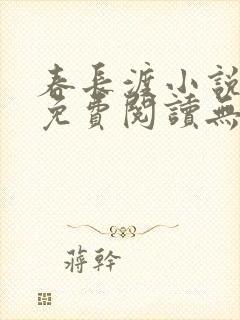 春長渡小說
免費閱讀無
蔣幹